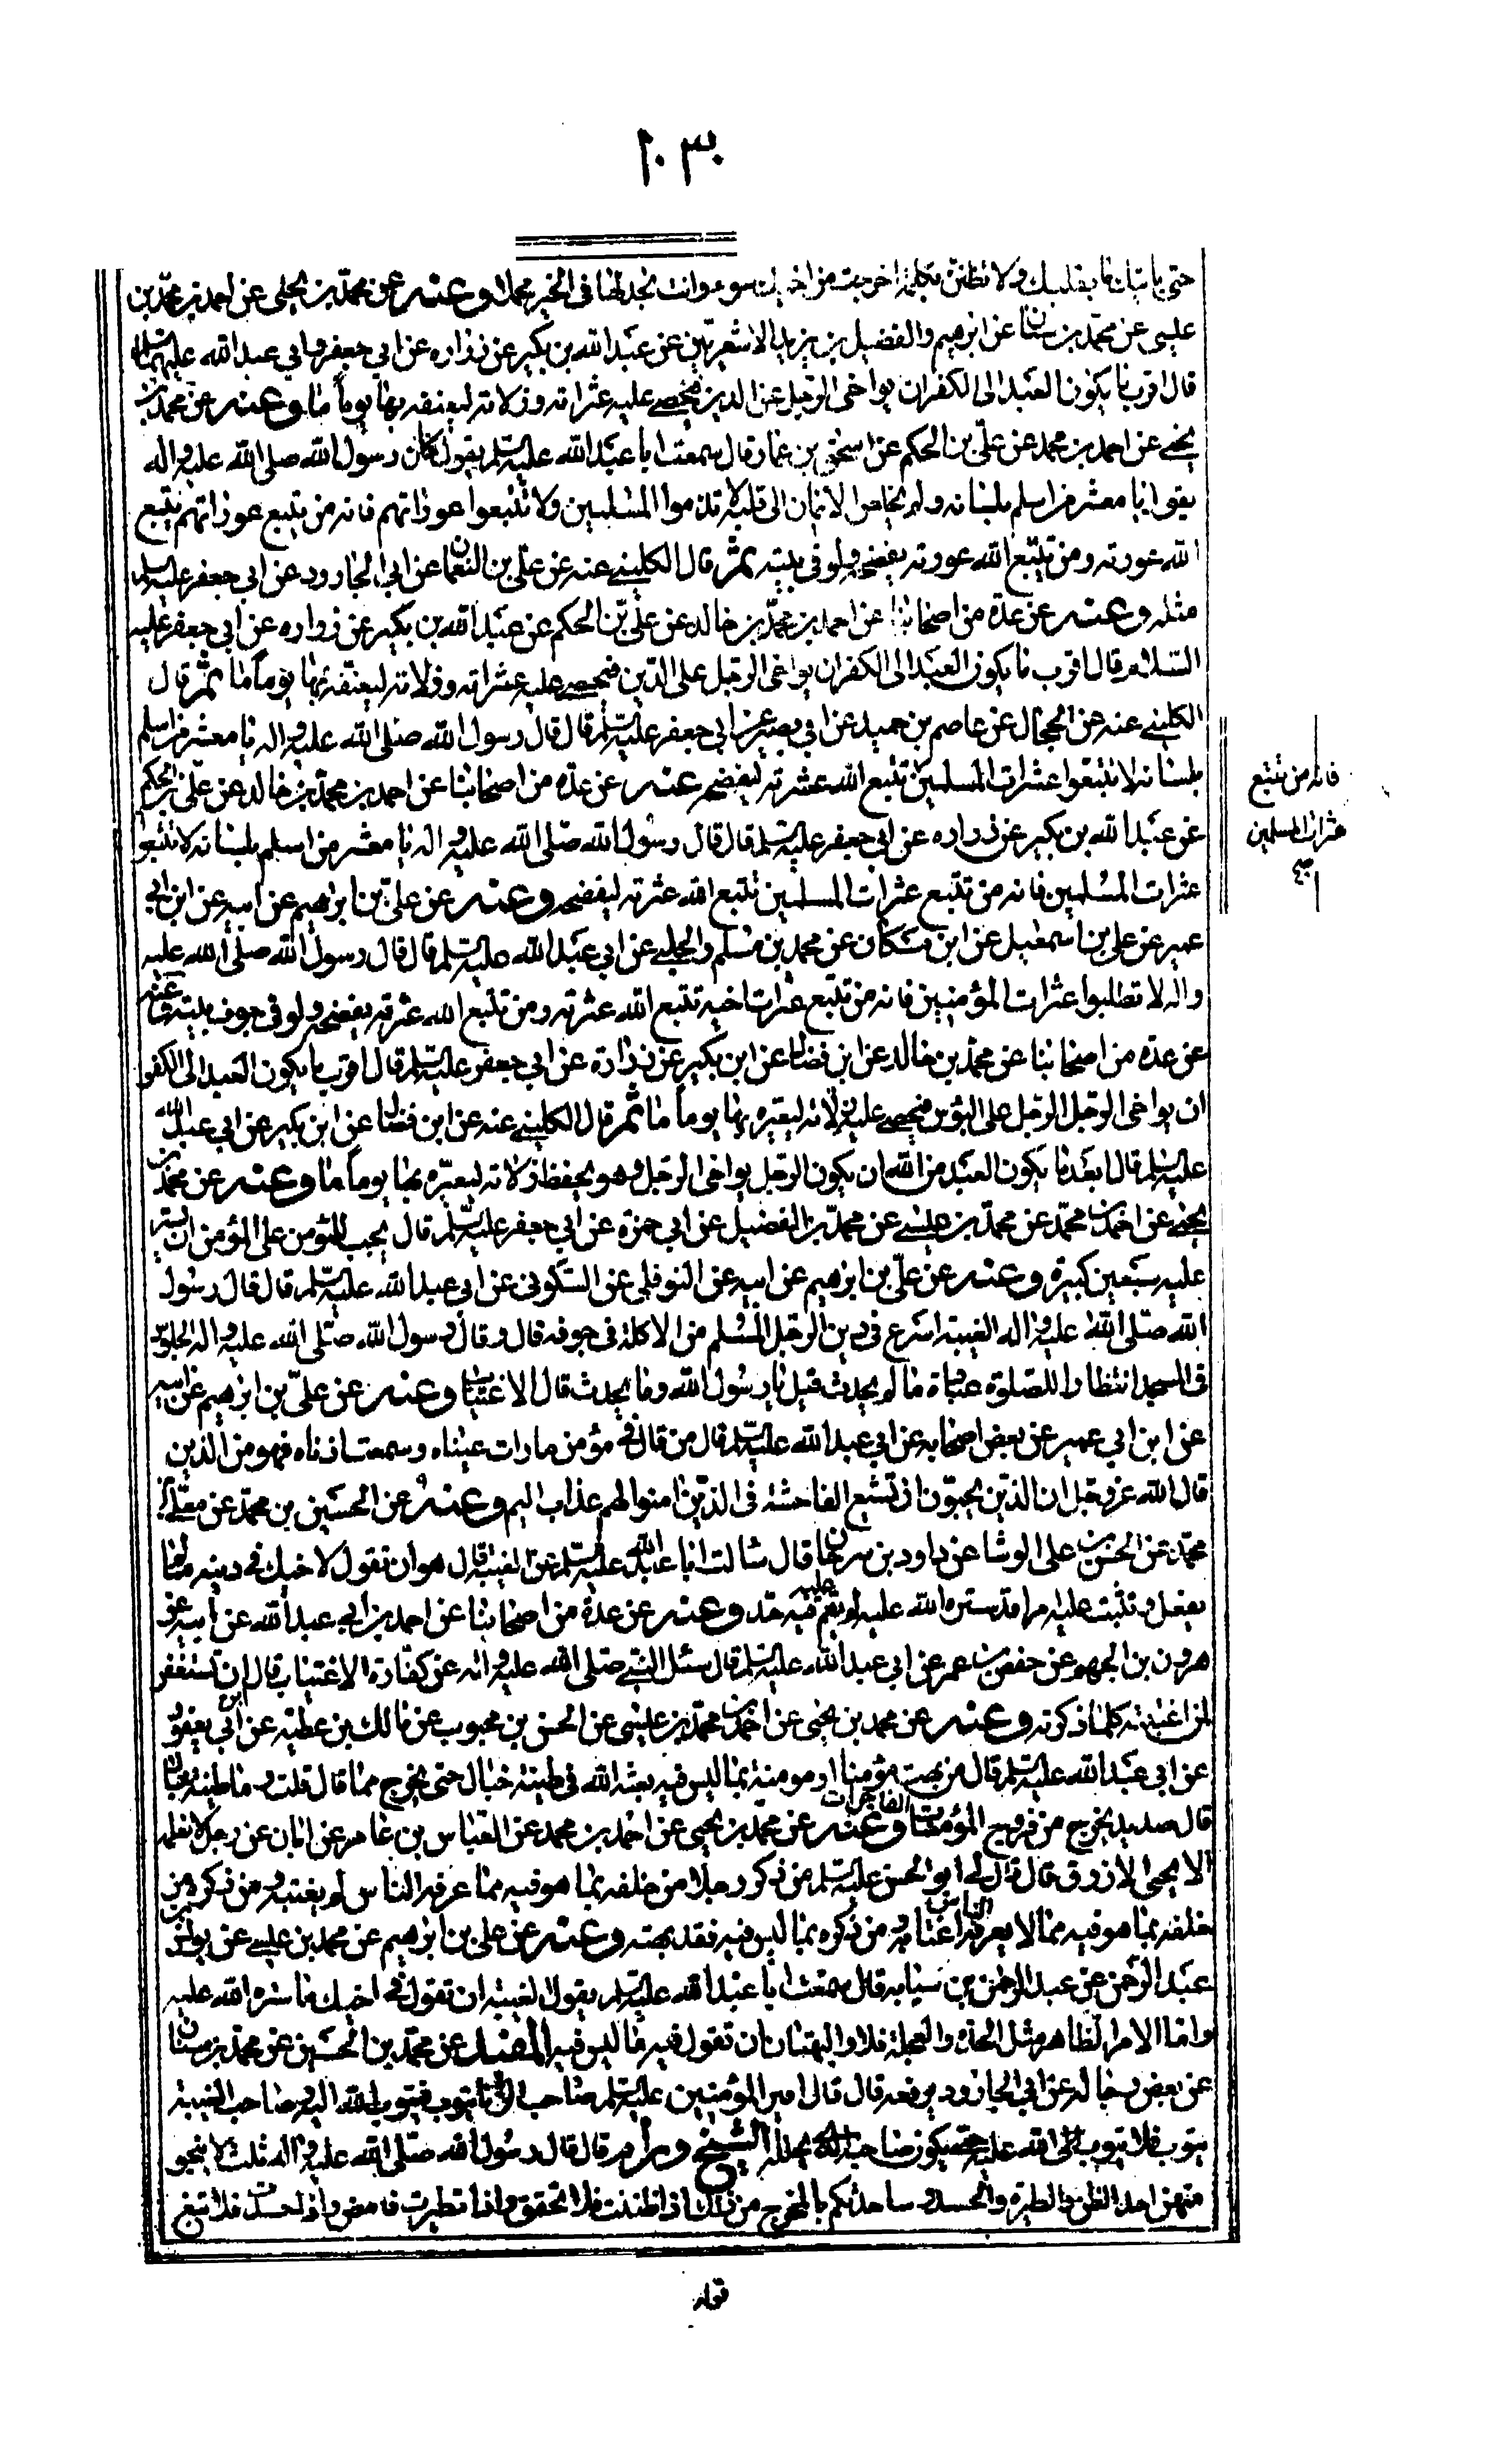 ١٠٣٠
حتى ياتيك ما يغلبك ولا تظنن بكلمة خرجت من اخيك سوء وانت تجد لها في الخير محملا وعنه عن محمد بن يحيى عن احمد بن محمد بن
عيسى عن محمد بن سنان عن ابرهيم والفضيل بن يزيد الاشعريين عن عبد الله بن بكير عن زراره عن ابي جعفر وابي عبد الله عليهما السلم
قال اقرب ما يكون العبد الى الكفر ان يواخى الرجل على الدين فيحصي عليه عثراته وزلاته ليعنفه بها يوماً ما وعنه عن محمد بن
يحيى عن احمد بن محمد عن علي بن الحكم عن اسحق بن عمار قال سمعت ابا عبد الله عليه السلم يقول كان رسول الله صلى الله عليه واله
يقول يا معشر من اسلم بلسانه ولم يخلص الايمان الى قلبه لا تذموا المسلمين ولا تتبعوا عوراتهم فانه من تتبع عوراتهم تتبع
الله عورته ومن تتبع الله عورته يفضحه ولو في بيته ثم قال الكليني عنه عن علي بن النعمان عن ابي الجارود عن ابي جعفر عليه السلم
مثله وعنه عن عدة من اصحابنا عن احمد بن محمد بن خالد عن علي بن الحكم عن عبد الله بن بكير عن زراره عن ابي جعفر عليه
السلام قال اقرب ما يكون العبد الى الكفر ان يواخى الرجل على الدين فيحصى عليه عثراته وزلاته ليعنفه بها يوماً ما ثم قال
الكليني عنه عن الحجال عن عاصم بن حميد عن ابي بصير عن ابي جعفر عليه السلم قال قال رسول الله صلى الله عليه واله يا معشر من اسلم
بلسانه لا تتبعوا عثرات المسلمين تتبع الله عثرته ليفضحه عنه عن عدة من اصحابنا عن احمد بن محمد بن خالد عن علي بن الحكم
عن عبد الله بن بكير عن زراره عن ابي جعفر عليه السلم قال قال رسول الله صلى الله عليه واله يا معشر من اسلم بلسانه لا تتبعوا
عثرات المسلمين فانه من تتبع عثرات المسلمين تتبع الله عثرته ليفضحه وعنه عن علي بن ابرهيم عن ابيه عن ابن ابي
عمير عن علي بن اسمعيل عن ابن مسكان عن محمد بن مسلم والحلبي عن ابي عبد الله عليه السلم قال قال رسول الله صلى الله عليه
واله لا تطلبوا عثرات المؤمنين فانه من تتبع عثرات اخيه تتبع الله عثرته ومن تتبع الله عثرته يفضحه ولو في جوف بيته وعنه
عن عدة من اصحابنا عن محمد بن خالد عن ابن فضال عن ابن بكير عن زرارة عن ابي جعفر عليه السلم قال اقرب ما يكون العبد الى الكفر
ان يواخى الرجل الرجل على الدين فيحصى عليه زلاته ليعيره بها يوماً ما ثم قال الكليني عنه عن ابن فضال عن ابن بكير عن ابي عبد الله
عليه السلم قال ابعد ما يكون العبد من الله ان يكون الرجل يواخى الرجل وهو يحفظ زلاته ليعيره بها يوماً ما وعنه عن محمد بن
يحيى عن احمد بن محمد عن محمد بن عيسى عن محمد بن الفضيل عن ابي حمزة عن ابي جعفر عليه السلم قال يجب للمؤمن على المؤمن ان يستر
عليه سبعين كبيرة وعنه عن علي بن ابرهيم عن ابيه عن النوفلي عن السكوني عن ابي عبد الله عليه السلم قال قال رسول
الله صلى الله عليه واله الغيبة اسرع في دين الرجل المسلم من الاكلة في جوفه قال وقال رسول الله صلى الله عليه واله الجلوس
في المسجد انتظار الصلوة عبادة ما لم يحدث قيل يا رسول الله وما يحدث قال الاغتياب وعنه عن علي بن ابرهيم عن ابيه
عن ابن ابي عمير عن بعض اصحابه عن ابي عبد الله عليه السلم قال من قال في مؤمن ما رات عيناه وسمعت اذناه فهو من الذين
قال الله عز وجل ان الذين يحبون ان تشيع الفاحشة في الذين امنوا لهم عذاب اليم وعنه عن الحسين بن محمد عن معلى بن
محمد عن الحسن بن علي الوشا عن داود بن سرحان قال سالت ابا عبد الله عليه السلم عن الغيبة قال هو ان تقول لاخيك في دينه ما لم
يفعل وتثبت عليه امرا قد ستره الله عليه لم يقم عليه فيه حد وعنه عن عدة من اصحابنا عن احمد بن ابي عبد الله عن ابيه عن
هرون بن الجهم عن حفص بن عمر عن ابي عبد الله عليه السلم قال سئل النبي صلى الله عليه واله عن كفارة الاغتياب قال ان تستغفر
لمن اغتبته كلما ذكرته وعنه عن محمد بن يحيى عن احمد بن محمد بن عيسى عن الحسن بن محبوب عن مالك بن عطية عن ابن ابي يعفور
عن ابي عبد الله عليه السلم قال من بهت مؤمنا او مومنة بما ليس فيه بعثه الله في طينة خبال حتى يخرج مما قال قلت وما طينة خبال
قال صديد يخرج من فروج المؤمسات الفاجرات وعنه عن محمد بن يحيى عن احمد بن محمد عن العباس بن عامر عن ابان عن رجل لا نعلمه
الا يحيى الازرق قال قال لي ابو الحسن عليه السلم من ذكر رجلا من خلفه بما هو فيه مما عرفه الناس لم يغتبه ومن ذكره من
خلفه بما هو فيه مما لا يعرفه الناس اغتابه ومن ذكره بما ليس فيه فقد بهته وعنه عن علي بن ابرهيم عن محمد بن عيسى عن يونس بن
عبد الرحمن عن عبد الرحمن بن سيابه قال سمعت ابا عبد الله عليه السلم يقول الغيبة ان تقول في اخيك ما ستره الله عليه
واما الامر الظاهر مثل الحدة والعجلة فلا والبهتان ان تقول فيه ما ليس فيه المفيد عن محمد بن الحسين عن محمد بن سنان
عن بعض رجاله عن ابي الجارود يرفعه قال قال امير المؤمنين عليه السلم صاحب الزنا يتوب فيتوب الله اليه وصاحب الغيبة
يتوب فلا يتوب الله عليه حتى يكون صاحبه الذي يحلله الشيخ ورام قال قال رسول الله صلى الله عليه واله ثلث لا ينجو
منهن احد الظن والطيرة والحسد وساحدثكم بالمخرج من ذلك اذا ظننت فلا تحقق واذا تطيرت فامض واذا حسدت فلا تبغ
فانه من تتبع
عثرات المسلمين
صح